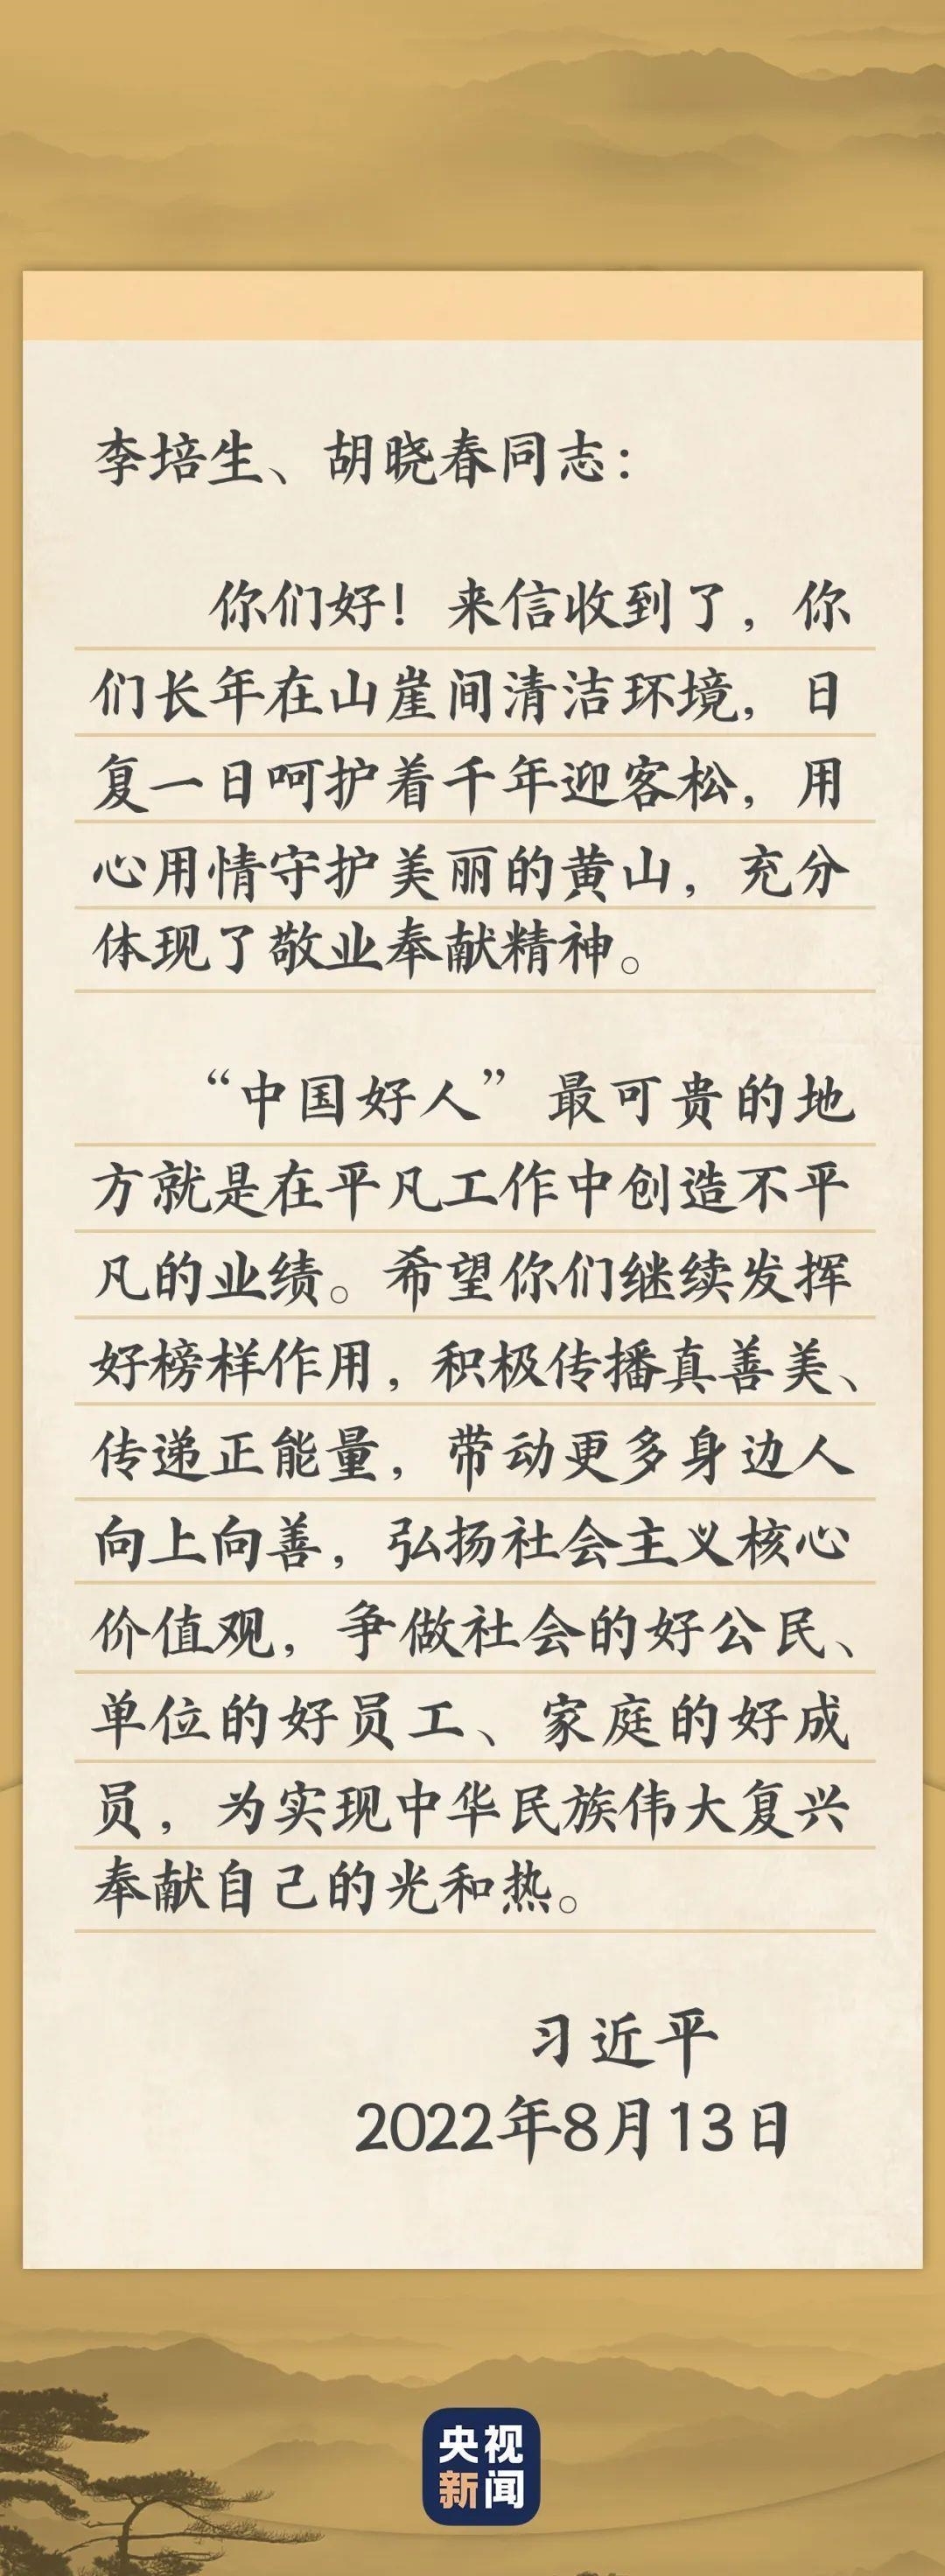 李培生、胡晓春同志：
你们好！来信收到了，你
们长年在山崖间清洁环境，日
复一日呵护着千年迎客松，用
心用情守护美丽的黄山，充分
体现了敬业奉献精神。
“中国好人”最可贵的地
方就是在平凡工作中创造不平
凡的业绩。希望你们继续发挥
好榜样作用，积极传播真善美、
传递正能量，带动更多身边人
向上向善，弘扬社会主义核心
价值观，争做社会的好公民、
单位的好员工、家庭的好成
员，为实现中华民族伟大复兴
奉献自己的光和热。
习近平
2022年8月13日
央视
新闻